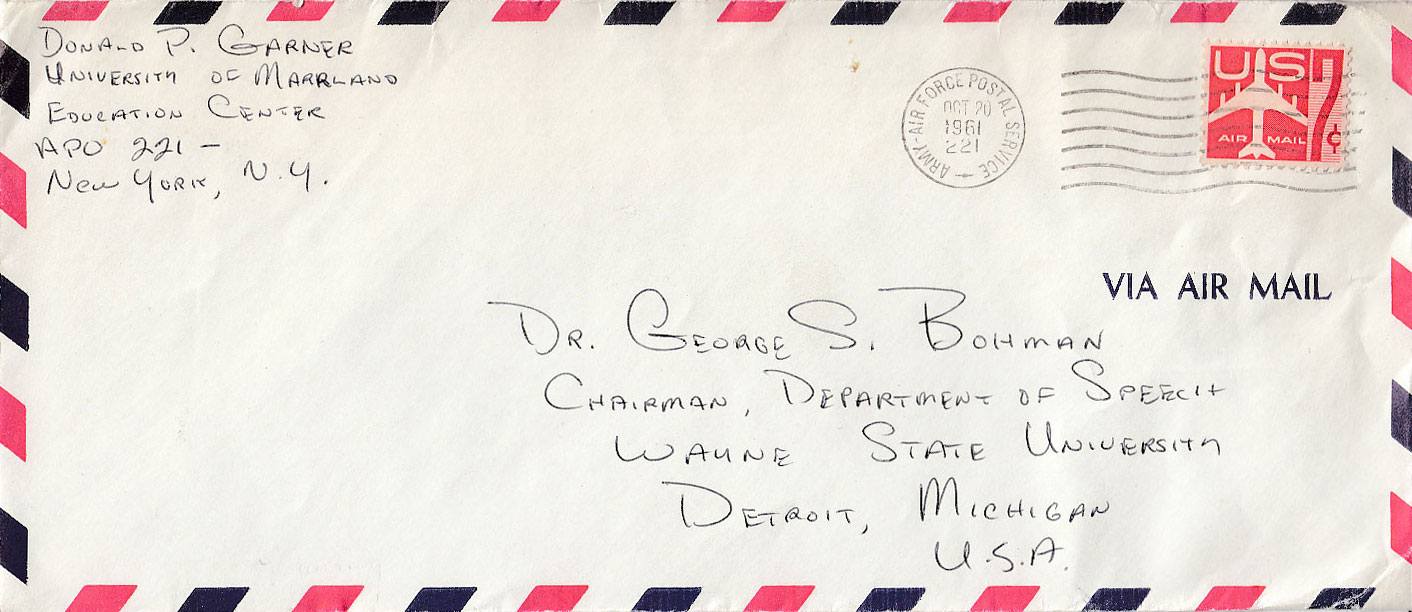 DONALD P. GARNER
UNIVERSITY OF MARYLAND
EDUCATION CENTER
APO 221 –
NEW YORK, N.Y.
ARMY-AIR FORCE POSTAL SERVICE
OCT 20
1961
221
US
7¢
AIR MAIL
VIA AIR MAIL
DR. GEORGE S. BOHMAN
CHAIRMAN, DEPARTMENT OF SPEECH
WAYNE STATE UNIVERSITY
DETROIT, MICHIGAN
U.S.A.